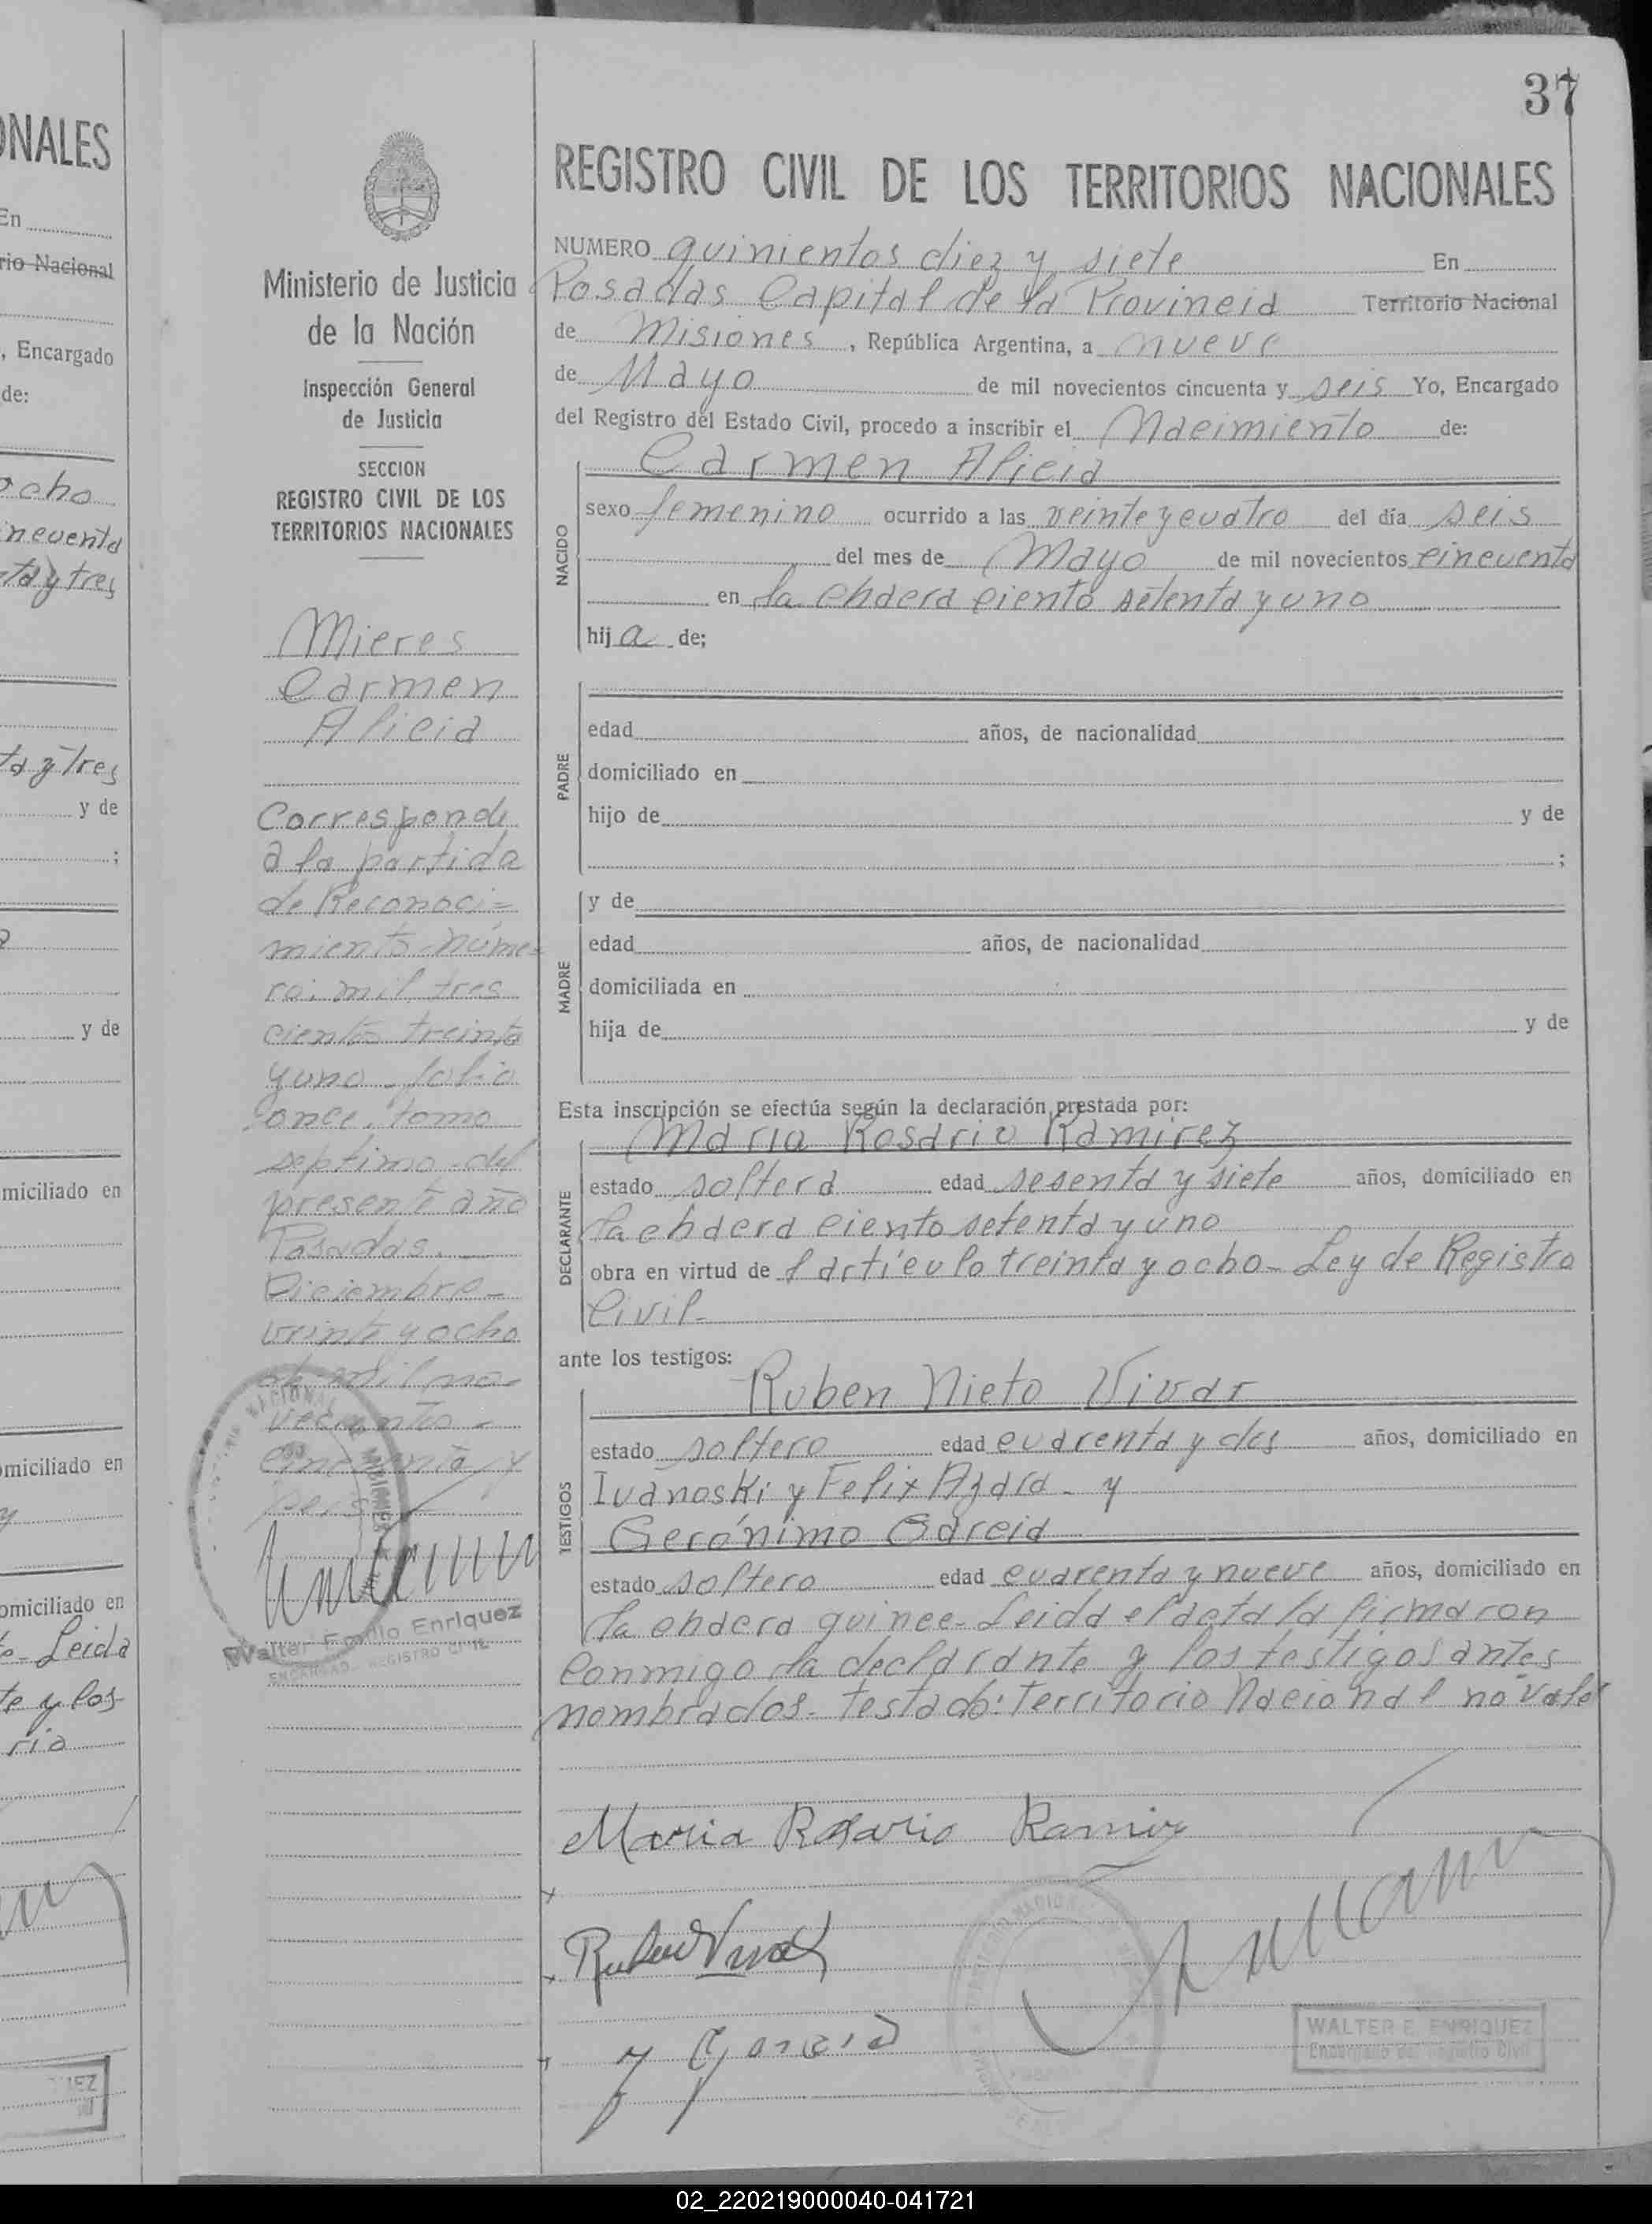 37
REGISTRO CIVIL DE LOS TERRITORIOS NACIONALES
NUMERO quinientos diez y siete En
Posadas Capital de la Provincia Territorio Nacional
de Misiones, República Argentina, a nueve
de Mayo de mil novecientos cincuenta y seis Yo, Encargado
del Registro del Estado Civil, procedo a inscribir el Nacimiento de:
NACIDO
Carmen Alicia
sexo femenino ocurrido a las veinte y cuatro del día seis
del mes de Mayo de mil novecientos cincuenta
en la chacra ciento setenta y uno
hija de;
PADRE
edad años, de nacionalidad
domiciliado en
hijo de y de
;
MADRE
y de
edad años, de nacionalidad
domiciliada en
hija de y de
Esta inscripción se efectúa según la declaración prestada por:
DECLARANTE
Maria Rosario Ramirez
estado soltera edad sesenta y siete años, domiciliado en
la chacra ciento setenta y uno
obra en virtud del artículo treinta y ocho - Ley de Registro
Civil-
ante los testigos:
TESTIGOS
Ruben Nieto Vivar
estado soltero edad cuarenta y dos años, domiciliado en
Ivanoski y Felix Azara - y
Gerónimo Garcia
estado soltero edad cuarenta y nueve años, domiciliado en
la chacra quince - Leida el acta la firmaron
conmigo la declarante y los testigos antes
nombrados - testado: Territorio Nacional no vale
Maria Rosario Ramirez
y Garcia
WALTER E. ENRIQUEZ
Encargado del Registro Civil
Ministerio de Justicia
de la Nación
Inspección General
de Justicia
SECCION
REGISTRO CIVIL DE LOS
TERRITORIOS NACIONALES
Mieres
Carmen
Alicia
Corresponde
a la partida
de Reconoci=
miento núme=
ro: mil tres
ciento treinta
y uno - folio
once, tomo
septimo - del
presente año
Posadas. -
Diciembre -
veinte y ocho
de mil no-
vecientos -
cincuenta y
seis
Walter Emilio Enriquez
ENCARGADO REGISTRO CIVIL
ONALES
En
rio Nacional
, Encargado
de:
ocho
incuenta
ta y tres
ta y tres
y de
;
y de
miciliado en
omiciliado en
y
omiciliado en
Leida
te y los
ria
UEZ
02_220219000040-041721